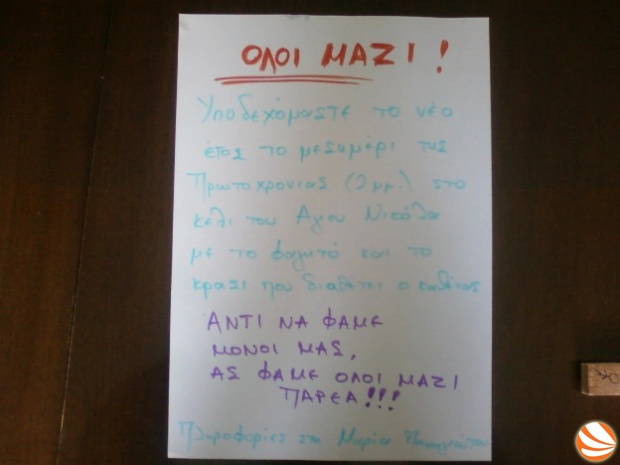 ΟΛΟΙ ΜΑΖΙ!
Υποδεχόμαστε το νέο
έτος το μεσημέρι της
Πρωτοχρονιάς (2 μμ.) στο
κελι του Αγιου Νικόλα
με το φαγητό και το
κρασι που διαθέτει ο καθένας
ΑΝΤΙ ΝΑ ΦΑΜΕ
ΜΟΝΟΙ ΜΑΣ,
ΑΣ ΦΑΜΕ ΟΛΟΙ ΜΑΖΙ
ΠΑΡΕΑ!!!
Πληροφορίες στη Μαρία